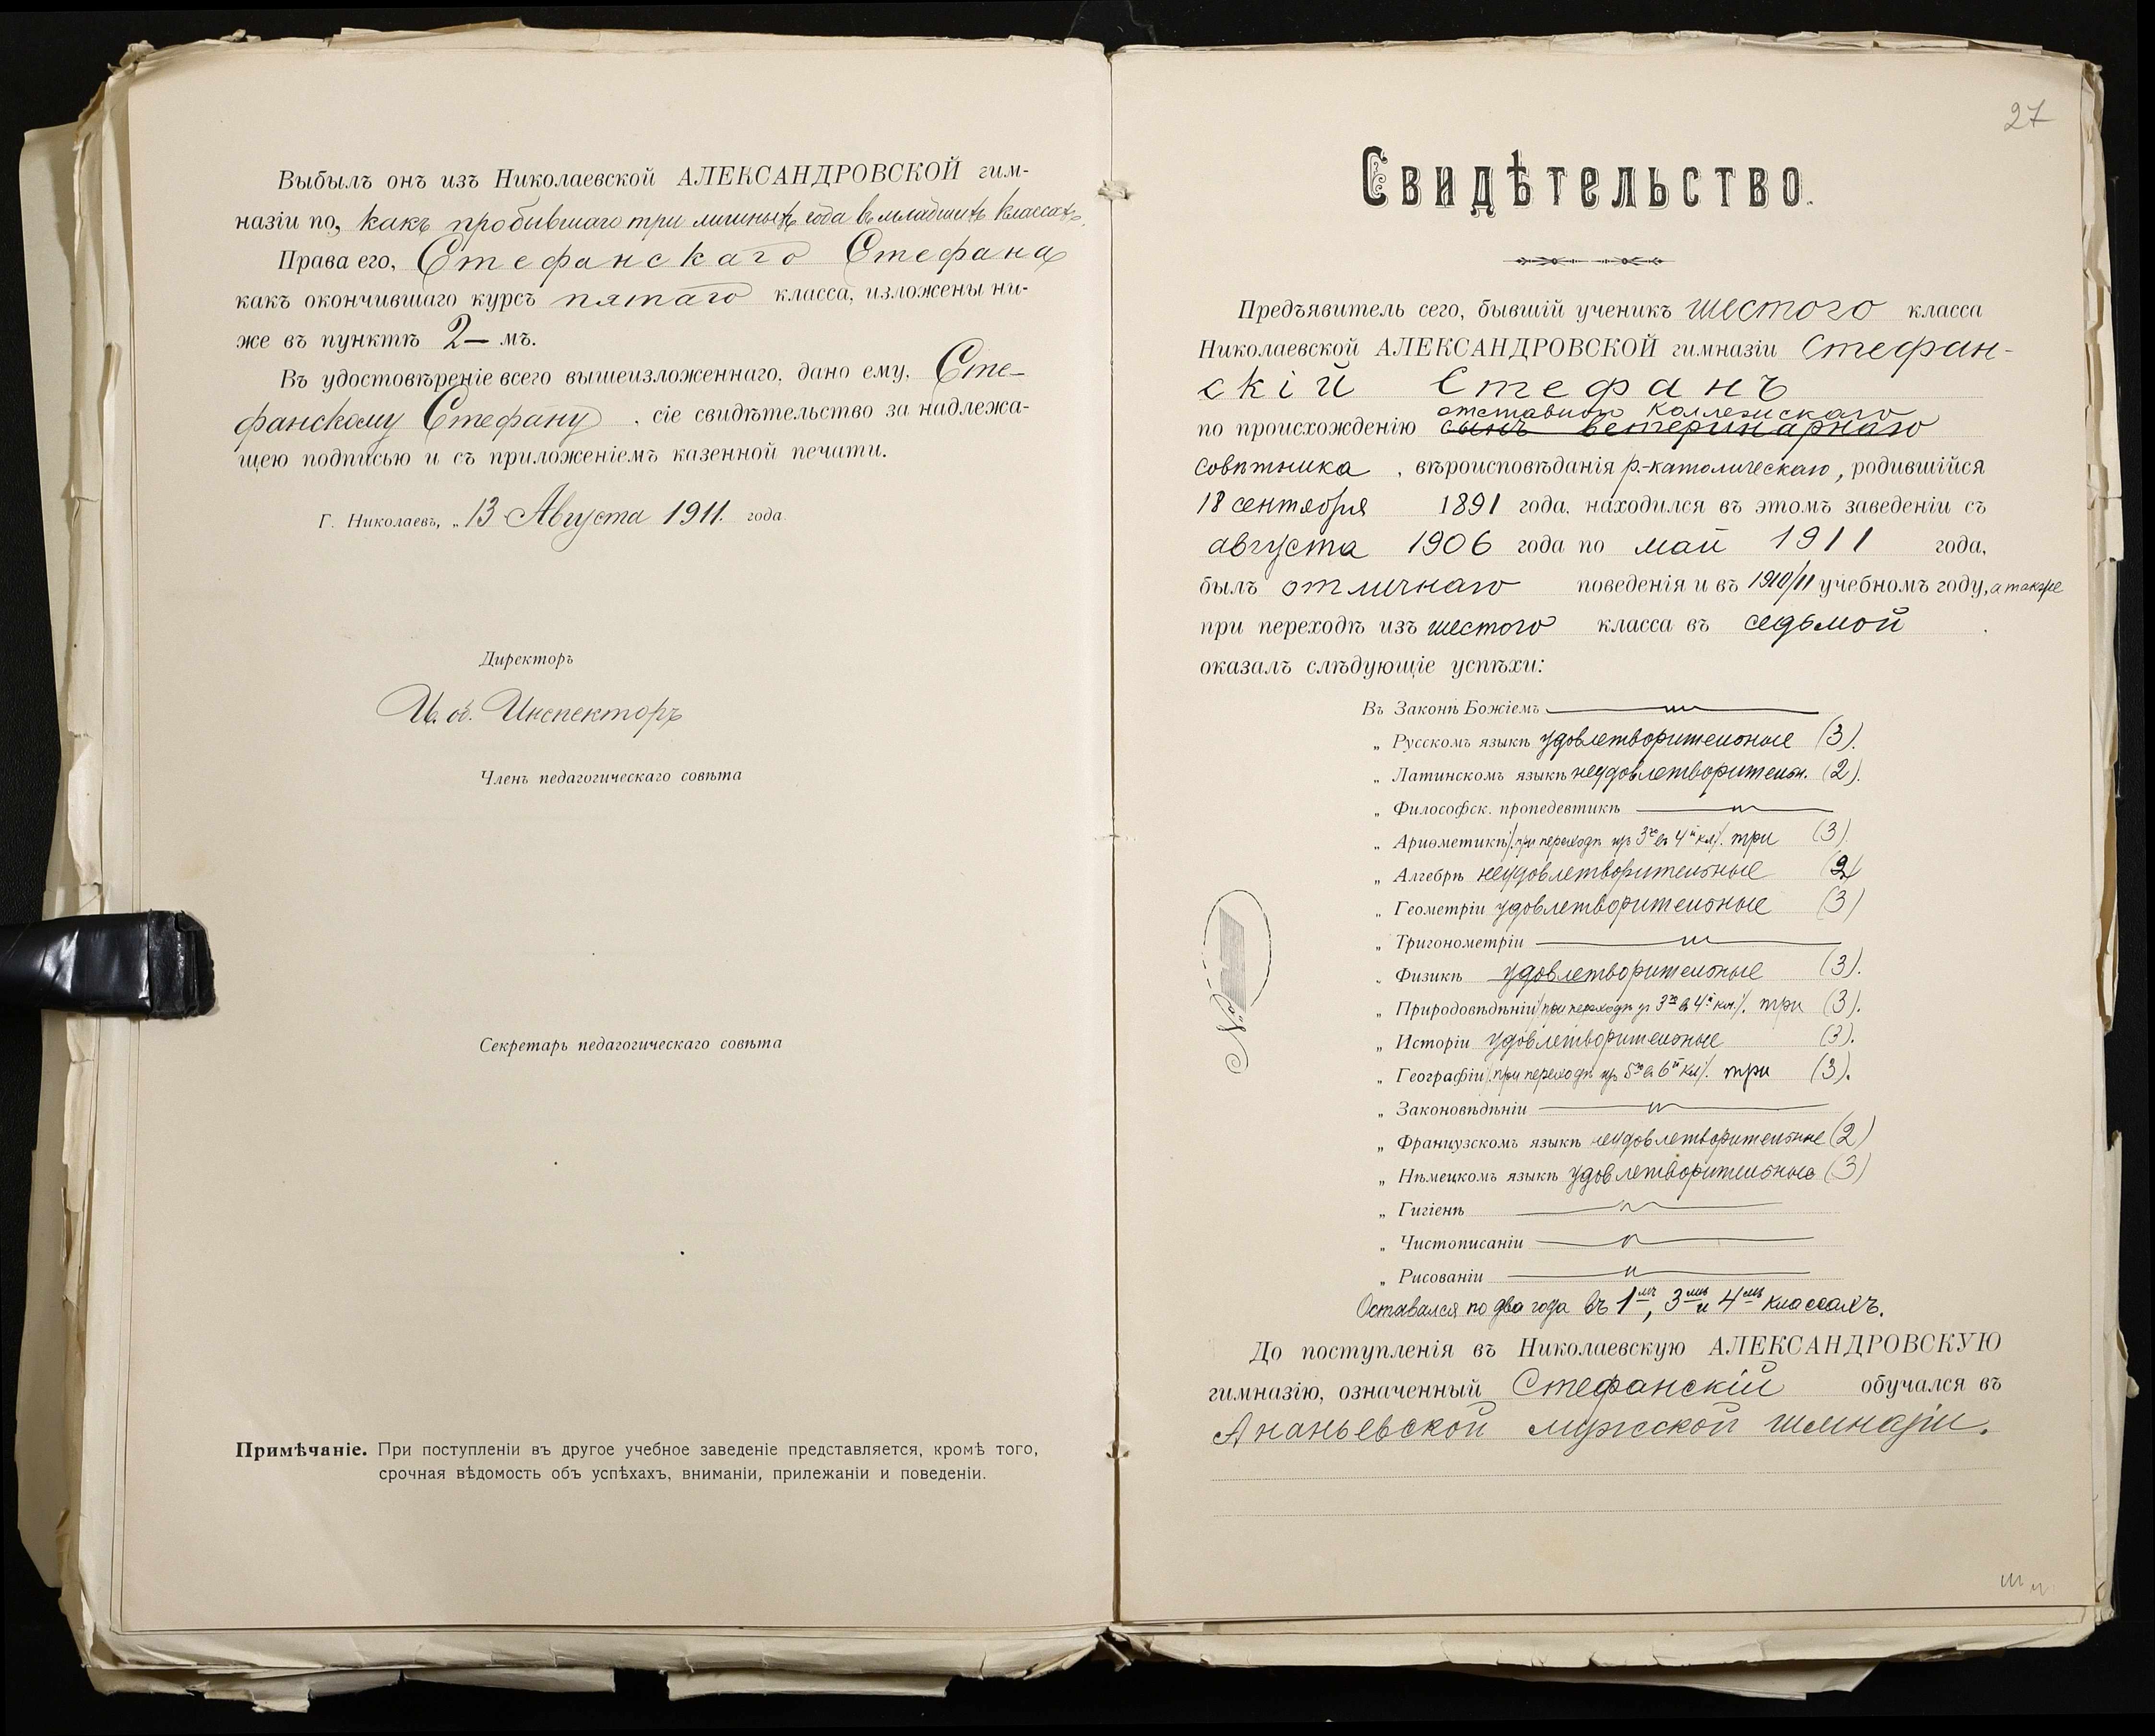 Выбылъ онъ изъ Николаевской АЛЕКСАНДРОВСКОЙ гим-
назіи по, какъ пробывшаго три лишныхъ года въ младшихъ классахъ.
Права его, Стефанскаго Стефана
какъ окончившаго курсъ пятаго класса, изложены ни-
же въ пунктѣ 2-мъ.
Въ удостовѣреніе всего вышеизложеннаго, дано ему, Сте-
фанскому Стефану, сіе свидѣтельство за надлежа-
щею подписью и съ приложеніемъ казенной печати.
Г. Николаевъ, „13 Августа 1911. года.
Директоръ
И. об. Инспекторъ
Членъ педагогическаго совѣта
Секретарь педагогическаго совѣта
Примѣчаніе. При поступленіи въ другое учебное заведеніе представляется, кромѣ того,
срочная вѣдомость объ успѣхахъ, вниманіи, прилежаніи и поведеніи.
27
Свидѣтельство.
Предъявитель сего, бывшій ученикъ шестого класса
Николаевской АЛЕКСАНДРОВСКОЙ гимназіи Стефан-
скій Стефанъ
отставного коллежскаго
по происхожденію сынъ ветеринарнаго
совѣтника, вѣроисповѣданія р.-католическаго, родившійся
18 сентября 1891 года, находился въ этомъ заведеніи съ
августа 1906 года по май 1911 года,
былъ отличнаго поведенія и въ 1910/11 учебномъ году, а также
при переходѣ изъ шестого класса въ седьмой
оказалъ слѣдующіе успѣхи:
Въ Законѣ Божіемъ
„ Русскомъ языкѣ удовлетворительные (3).
„ Латинскомъ языкѣ неудовлетворительн. (2).
„ Философск. пропедевтикѣ
„ Ариѳметикѣ /при переходѣ изъ 3го въ 4й кл/. три (3)
„ Алгебрѣ неудовлетворительные (2)
„ Геометріи удовлетворительные (3)
„ Тригонометріи
„ Физикѣ удовлетворительные (3).
„ Природовѣдѣніи /при переходѣ из 3го въ 4й кл./. три (3).
„ Исторіи удовлетворительные (3).
„ Географіи /при переходѣ изъ 5го въ 6й кл/. три (3).
„ Законовѣдѣніи
„ Французскомъ языкѣ неудовлетворительные (2)
„ Нѣмецкомъ языкѣ удовлетворительные (3)
„ Гигіенѣ
„ Чистописаніи
„ Рисованіи
Оставался по два года въ 1мъ, 3мъ и 4мъ классахъ.
До поступленія въ Николаевскую АЛЕКСАНДРОВСКУЮ
гимназію, означенный Стефанскій обучался въ
Ананьевской мужской гимназіи.
№